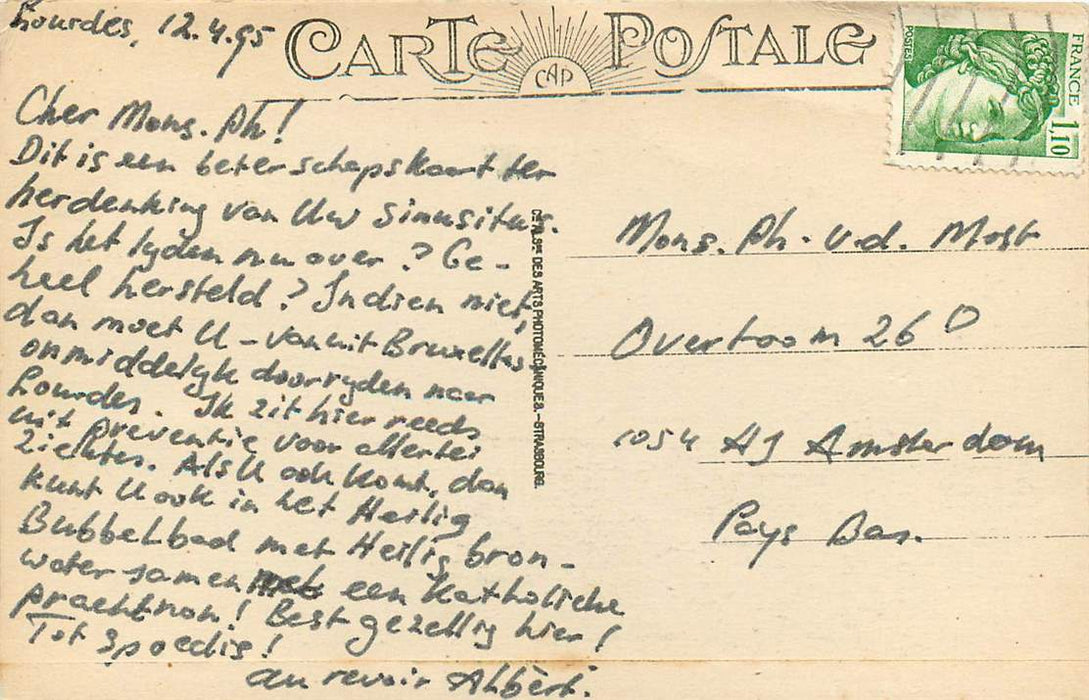 Lourdes, 12.4.95
CARTE POSTALE
CAP
POSTES
FRANCE
1,10
Cher Mons. Ph!
Dit is een beterschapskaart ter
herdenking van Uw sinusitus.
Is het lyden nu over? Ge-
heel hersteld? Indien niet,
dan moet U - vanuit Bruxelles
onmiddelyk doorryden naar
Lourdes. Ik zit hier reeds
uit preventie voor allerlei
ziektes. Als U ook komt, dan
kunt U ook in het Heilig
Bubbelbad met Heilig bron-
water samen met een Katholieke
prachtnon! Best gezellig hier!
Tot spoedig!
au revoir Albèrt.
CIE ALSNE DES ARTS PHOTOMÉCANIQUES.-STRASBOURG.
Mons. Ph. v.d. Most
Overtoom 26 D
1054 HJ Amsterdam
Pays Bas.